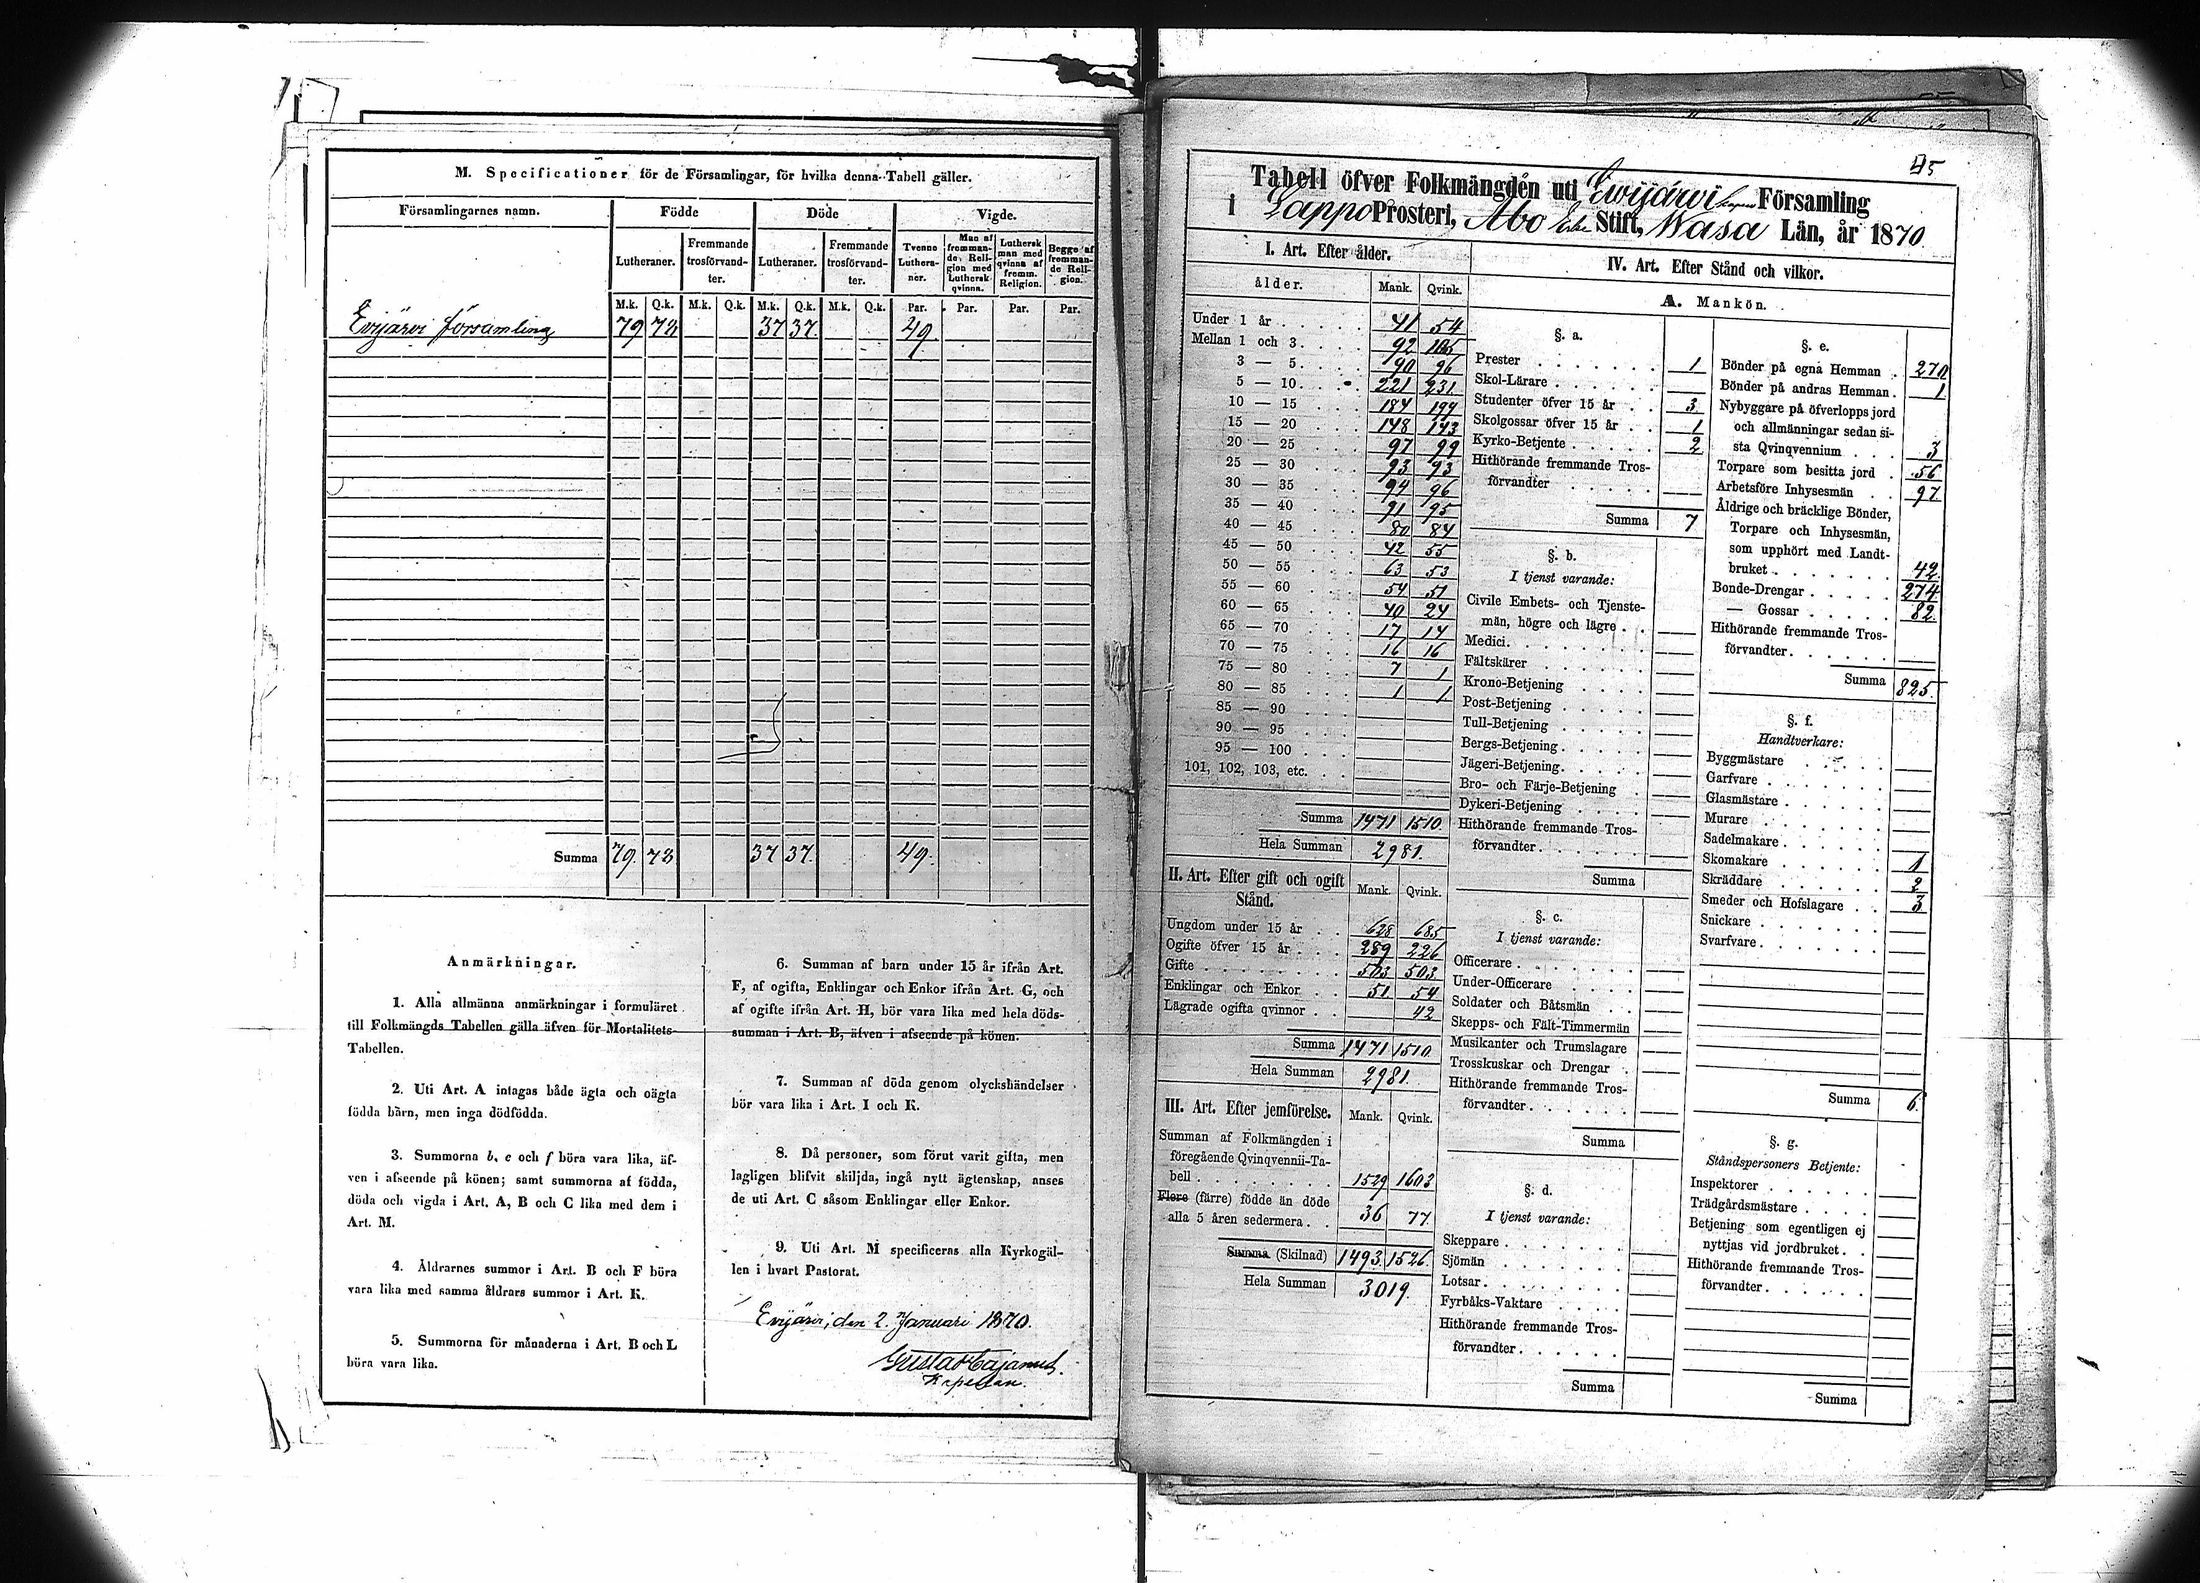 M. Specificationer för de Församlingar, för hvilka denna Tabell gäller.
Församlingarnes namn. Födde Döde Vigde.
Lutheraner. Fremmande trosförvandter. Lutheraner. Fremmande trosförvandter. Tvenne Lutheraner. Man af fremmande Religion med Luthersk qvinna. Luthersk man med qvinna af fremm. Religion. Begge af fremmande Religion.
M.k. Q.k. M.k. Q.k. M.k. Q.k. M.k. Q.k. Par. Par. Par. Par.
Evijärvi församling 79 73 37 37. 49.
Summa 79. 73 37 37. 49.
Anmärkningar.
1. Alla allmänna anmärkningar i formuläret
till Folkmängds Tabellen gälla äfven för Mortalitets-
Tabellen.
2. Uti Art. A intagas både ägta och oägta
födda bàrn, men inga dödfödda.
3. Summorna b, c och f böra vara lika, äf-
ven i afseende på könen; samt summorna af födda,
döda och vigda i Art. A, B och C lika med dem i
Art. M.
4. Åldrarnes summor i Art. B och F böra
vara lika med samma åldrars summor i Art. K.
5. Summorna för månaderna i Art. B och L
böra vara lika.
6. Summan af barn under 15 år ifrån Art.
F, af ogifta, Enklingar och Enkor ifrån Art. G, och
af ogifte ifrån Art. H, bör vara lika med hela döds-
summan i Art. B, äfven i afseende på könen.
7. Summan af döda genom olyckshändelser
bör vara lika i Art. I och K.
8. Då personer, som förut varit gifta, men
lagligen blifvit skiljda, ingå nytt ägtenskap, anses
de uti Art. C såsom Enklingar eller Enkor.
9. Uti Art. M specificeras alla Kyrkogäl-
len i hvart Pastorat.
Evijärvi, den 2. Januari 1870.
Gustaf Cajanus.
Kapellan.
45
Tabell öfver Folkmängden uti Evijärvi Församling
i Lappo Prosteri, Åbo Stift, Wasa Län, år 1870
I. Art. Efter ålder.
ålder. Mank. Qvink.
Under 1 år 41 54
Mellan 1 och 3 92 105
3 — 5 90 96
5 — 10 221 231
10 — 15 184 199
15 — 20 148 143
20 — 25 97 99
25 — 30 93 93
30 — 35 94 96
35 — 40 91 95
40 — 45 80 84
45 — 50 42 55
50 — 55 63 53
55 — 60 54 51
60 — 65 40 24
65 — 70 17 14
70 — 75 16 16
75 — 80 7 1
80 — 85 1 1
85 — 90
90 — 95
95 — 100
101, 102, 103, etc.
Summa 1471 1510.
Hela Summan 2981.
II. Art. Efter gift och ogift
Stånd. Mank. Qvink.
Ungdom under 15 år 628 685
Ogifte öfver 15 år 289 226
Gifte 503 503
Enklingar och Enkor 51 54
Lägrade ogifta qvinnor 42
Summa 1471 1510
Hela Summan 2981.
III. Art. Efter jemförelse. Mank. Qvink.
Summan af Folkmängden i
föregående Qvinqvennii-Ta-
bell 1529 1603
Flere (färre) födde än döde
alla 5 åren sedermera 36 77.
Summa (Skilnad) 1493. 1526.
Hela Summan 3019.
IV. Art. Efter Stånd och vilkor.
A. Mankön.
§. a.
Prester 1
Skol-Lärare
Studenter öfver 15 år 3
Skolgossar öfver 15 år 1
Kyrko-Betjente 2
Hithörande fremmande Tros-
förvandter
Summa 7
§. b.
I tjenst varande:
Civile Embets- och Tjenste-
män, högre och lägre
Medici
Fältskärer
Krono-Betjening
Post-Betjening
Tull-Betjening
Bergs-Betjening
Jägeri-Betjening
Bro- och Färje-Betjening
Dykeri-Betjening
Hithörande fremmande Tros-
förvandter
Summa
§. c.
I tjenst varande:
Officerare
Under-Officerare
Soldater och Båtsmän
Skepps- och Fält-Timmermän
Musikanter och Trumslagare
Trosskuskar och Drengar
Hithörande fremmande Tros-
förvandter
Summa
§. d.
I tjenst varande:
Skeppare
Sjömän
Lotsar
Fyrbåks-Vaktare
Hithörande fremmande Tros-
förvandter
Summa
§. e.
Bönder på egna Hemman 270
Bönder på andras Hemman 1
Nybyggare på öfverlopps jord
och allmänningar sedan si-
sta Qvinqvennium 3
Torpare som besitta jord 56
Arbetsföre Inhysesmän 97
Åldrige och bräcklige Bönder,
Torpare och Inhysesmän,
som upphört med Landt-
bruket 42.
Bonde-Drengar 274
— Gossar 82.
Hithörande fremmande Tros-
förvandter
Summa 825.
§. f.
Handtverkare:
Byggmästare
Garfvare
Glasmästare
Murare
Sadelmakare
Skomakare 1
Skräddare 2
Smeder och Hofslagare 3
Snickare
Svarfvare
Summa 6.
§. g.
Ståndspersoners Betjente:
Inspektorer
Trädgårdsmästare
Betjening som egentligen ej
nyttjas vid jordbruket
Hithörande fremmande Tros-
förvandter
Summa